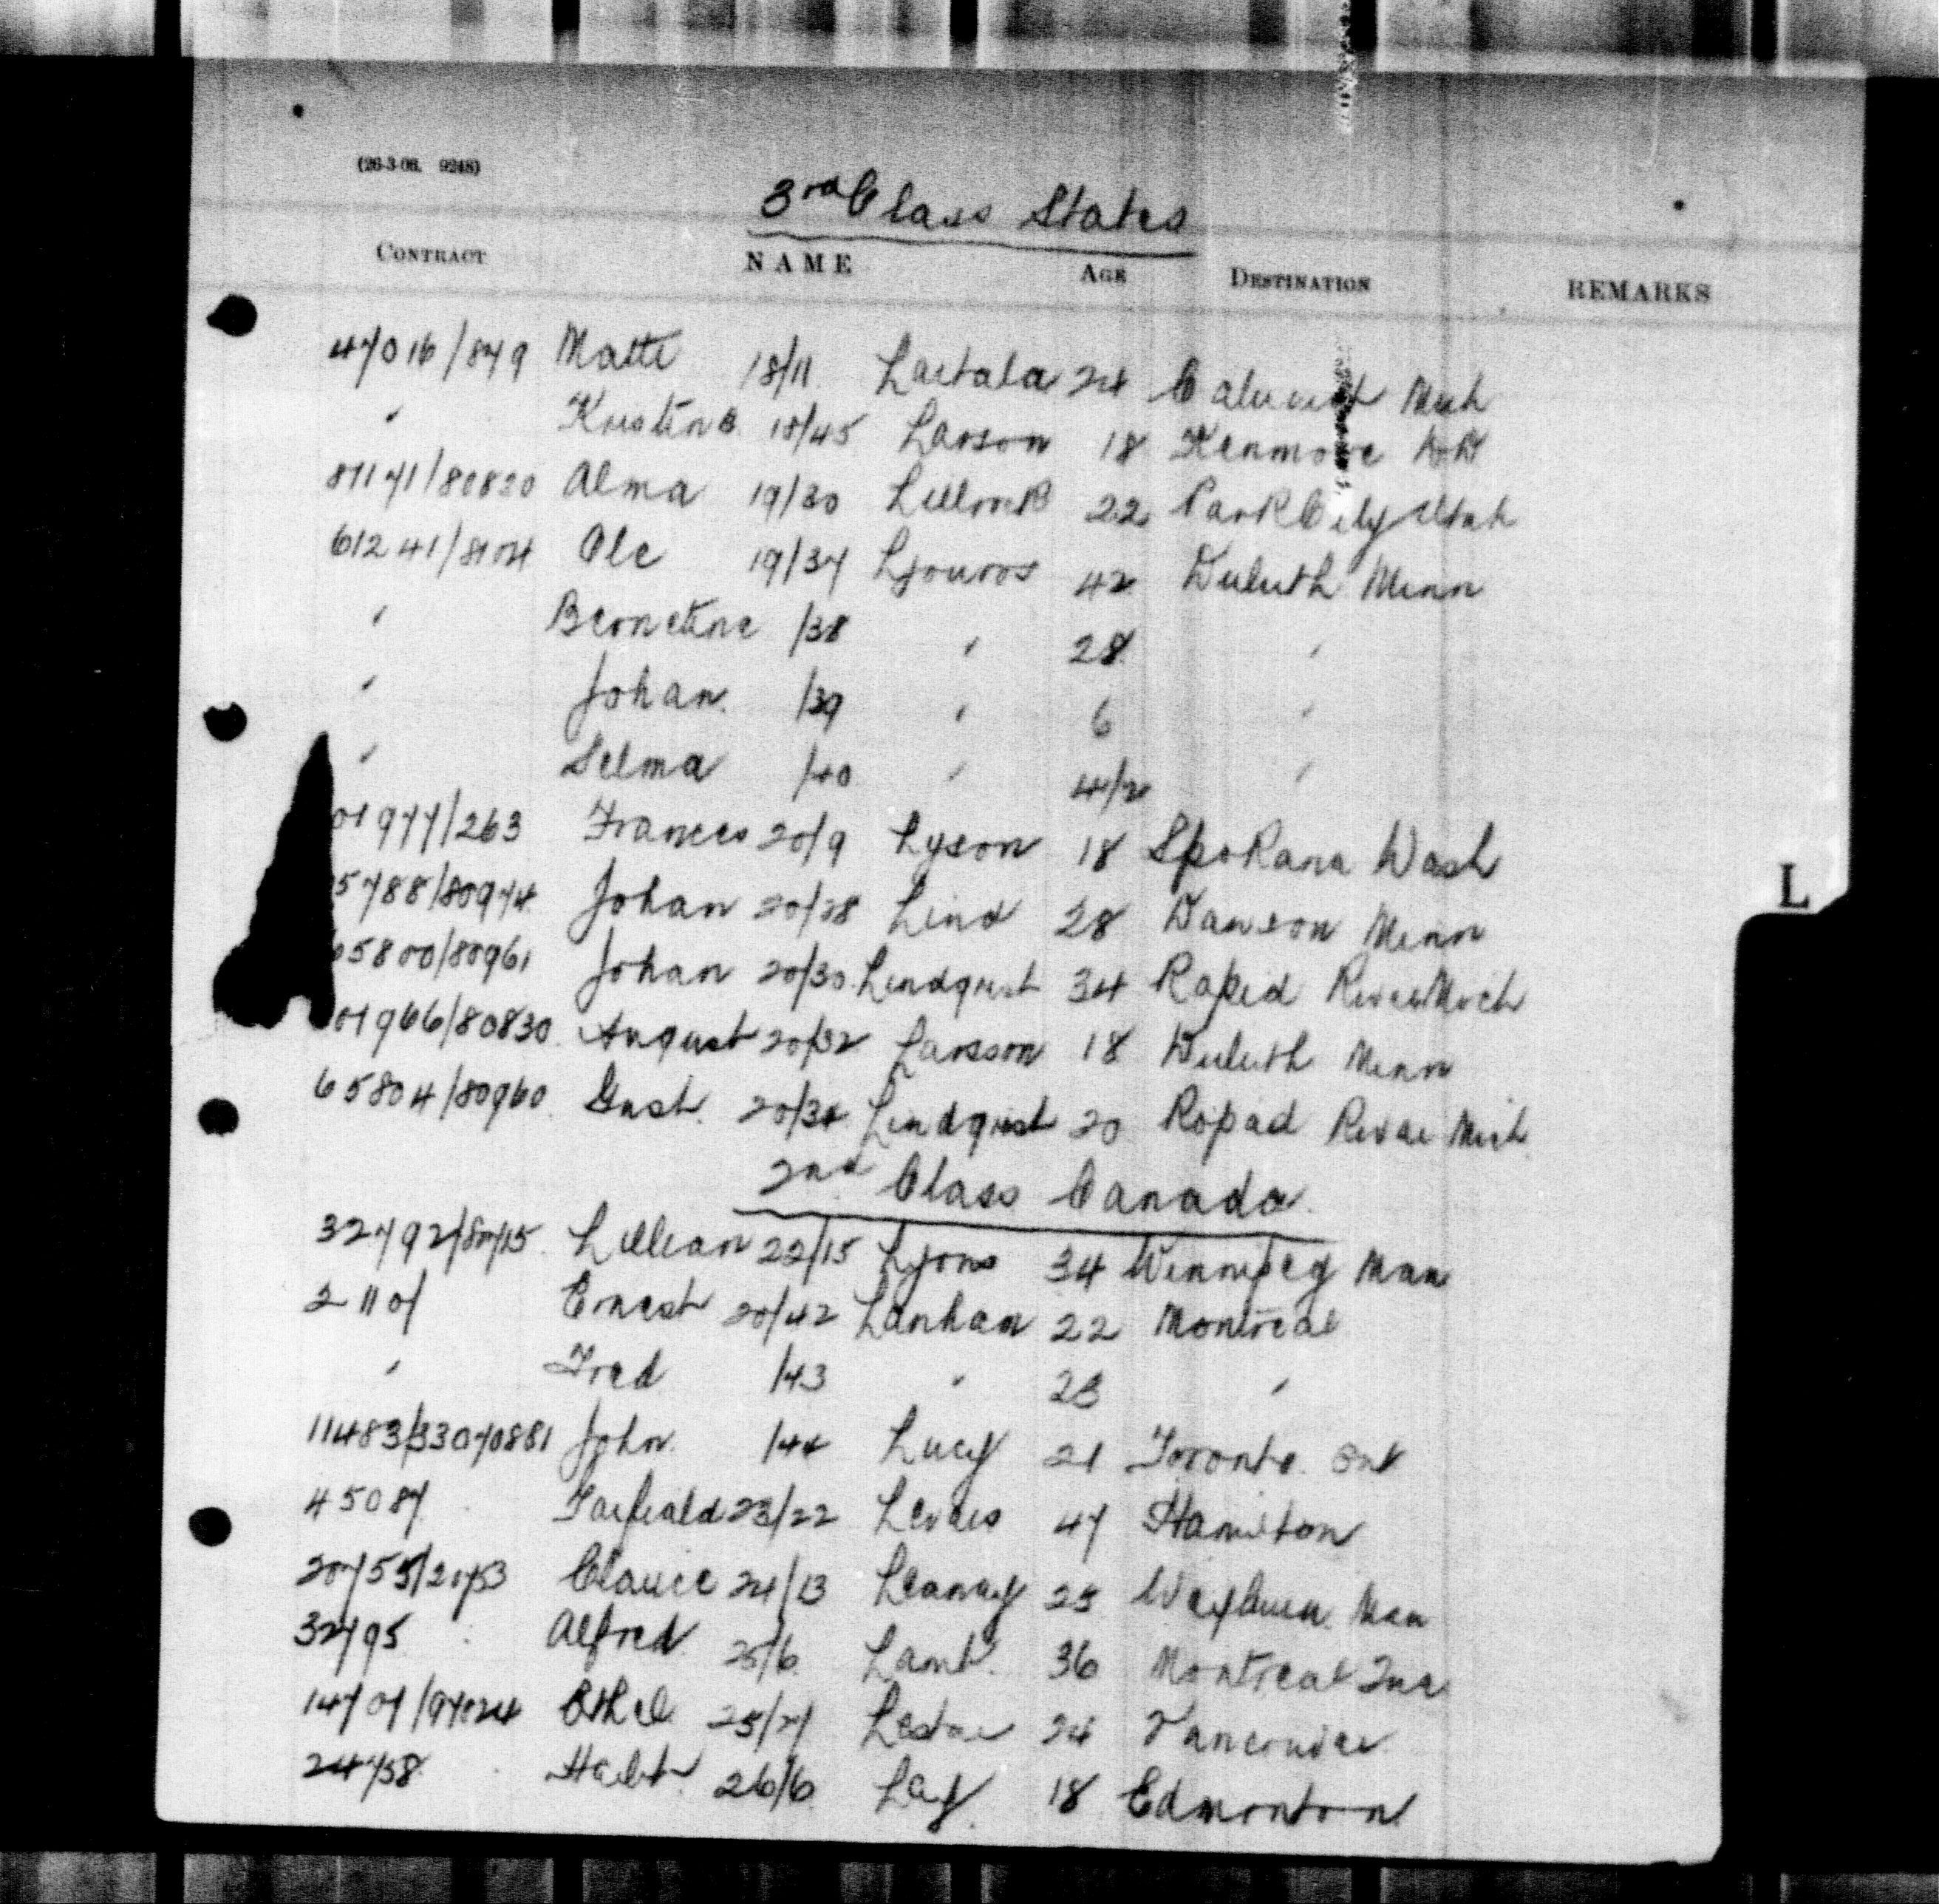 (26-3-06. 9248)
3rd Class States
CONTRACT NAME AGE DESTINATION REMARKS
47016/879 Matti 18/11 Laitala 24 Calumet Mich
" 18/45 Larson 18 Kenmore
87171/80820 Alma 19/30 22 Park City Utah
61241/8704 Ole 19/37 42 Duluth Minn
" /38 " 28 "
" Johan. /39 " 6 "
" Selma /40 " 4/2 "
01977/263 Frances 20/9 Lyson 18 Spokana Wash
5788/80974 Johan 20/28 Lind 28 Dawson Minn
65800/80961 Johan 20/30 Lindquist 34 Rapid River Mich
01966/80830 August 20/32 Larsson 18 Duluth Minn
65804/80960 Gust. 20/34 Lindquist 20 Rapid River Mich
L
2nd Class Canada
32792/8715 Lillian 22/15 Lyons 34 Winnipeg Man
21107 Ernest 20/42 Lanham 22 Montreal
" Fred /43 " 23 "
11483/33070881 John /44 Lucy 21 Toronto Ont
45087 23/22 47 Hamilton
20755/20753 24/13 Man
32795 Alfred 25/6 Lamb 36 Montreal Que
14707/97024 Ethel 25/27 Lester 24 Vancouver
24758 26/6 Ley 18 Edmonton